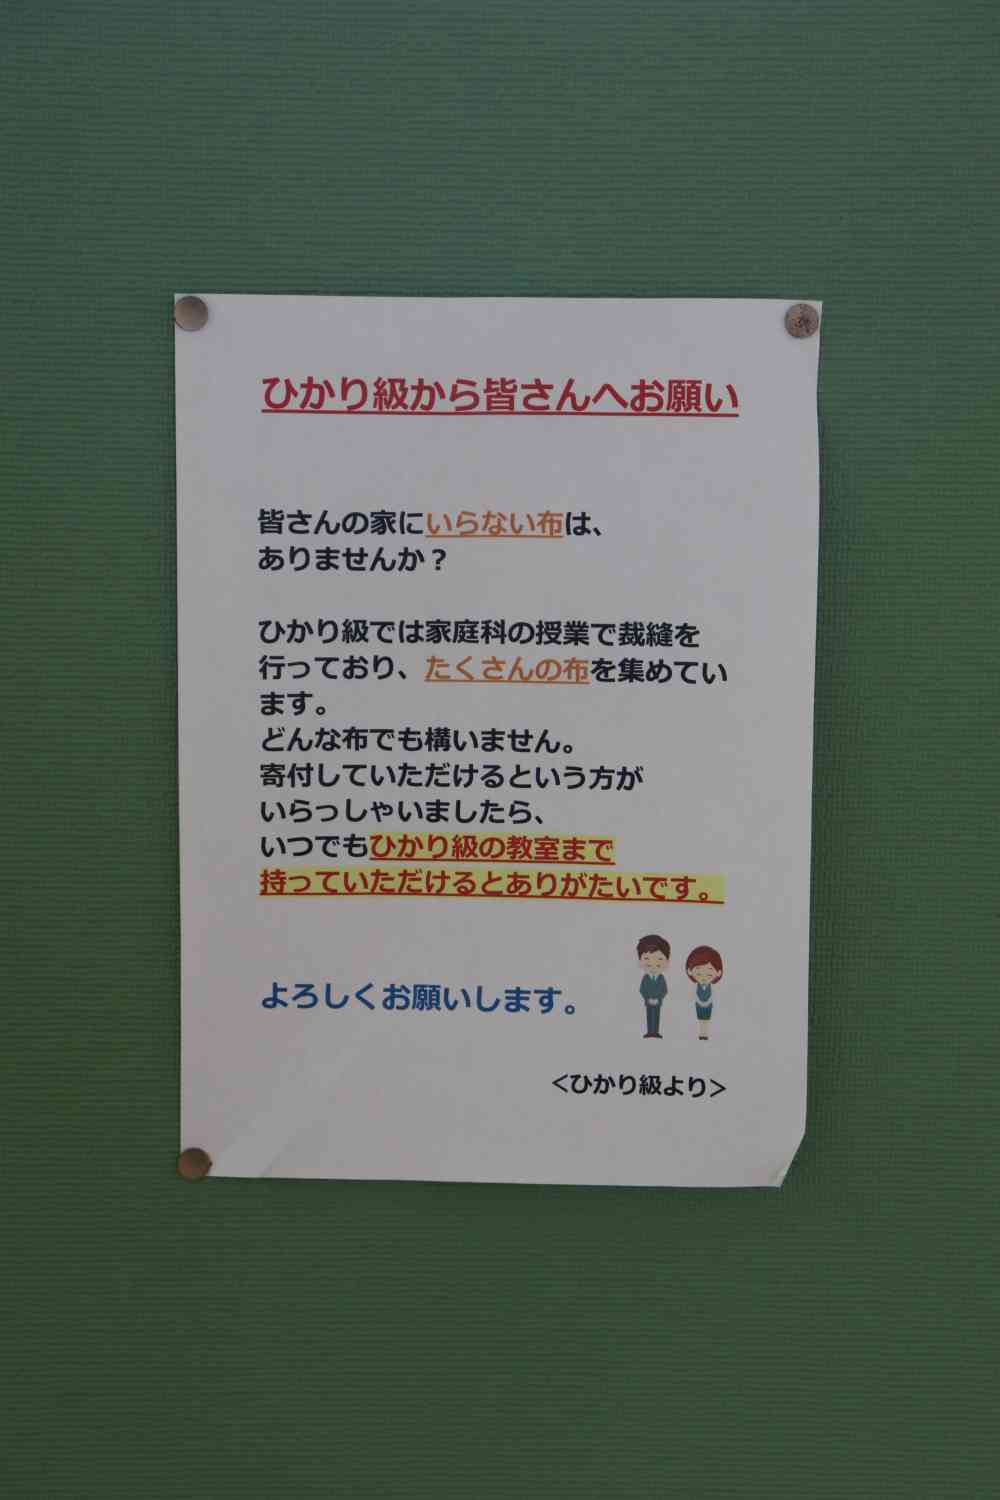 ひかり級から皆さんへお願い
皆さんの家にいらない布は、
ありませんか？
ひかり級では家庭科の授業で裁縫を
行っており、たくさんの布を集めてい
ます。
どんな布でも構いません。
寄付していただけるという方が
いらっしゃいましたら、
いつでもひかり級の教室まで
持っていただけるとありがたいです。
よろしくお願いします。
<ひかり級より>